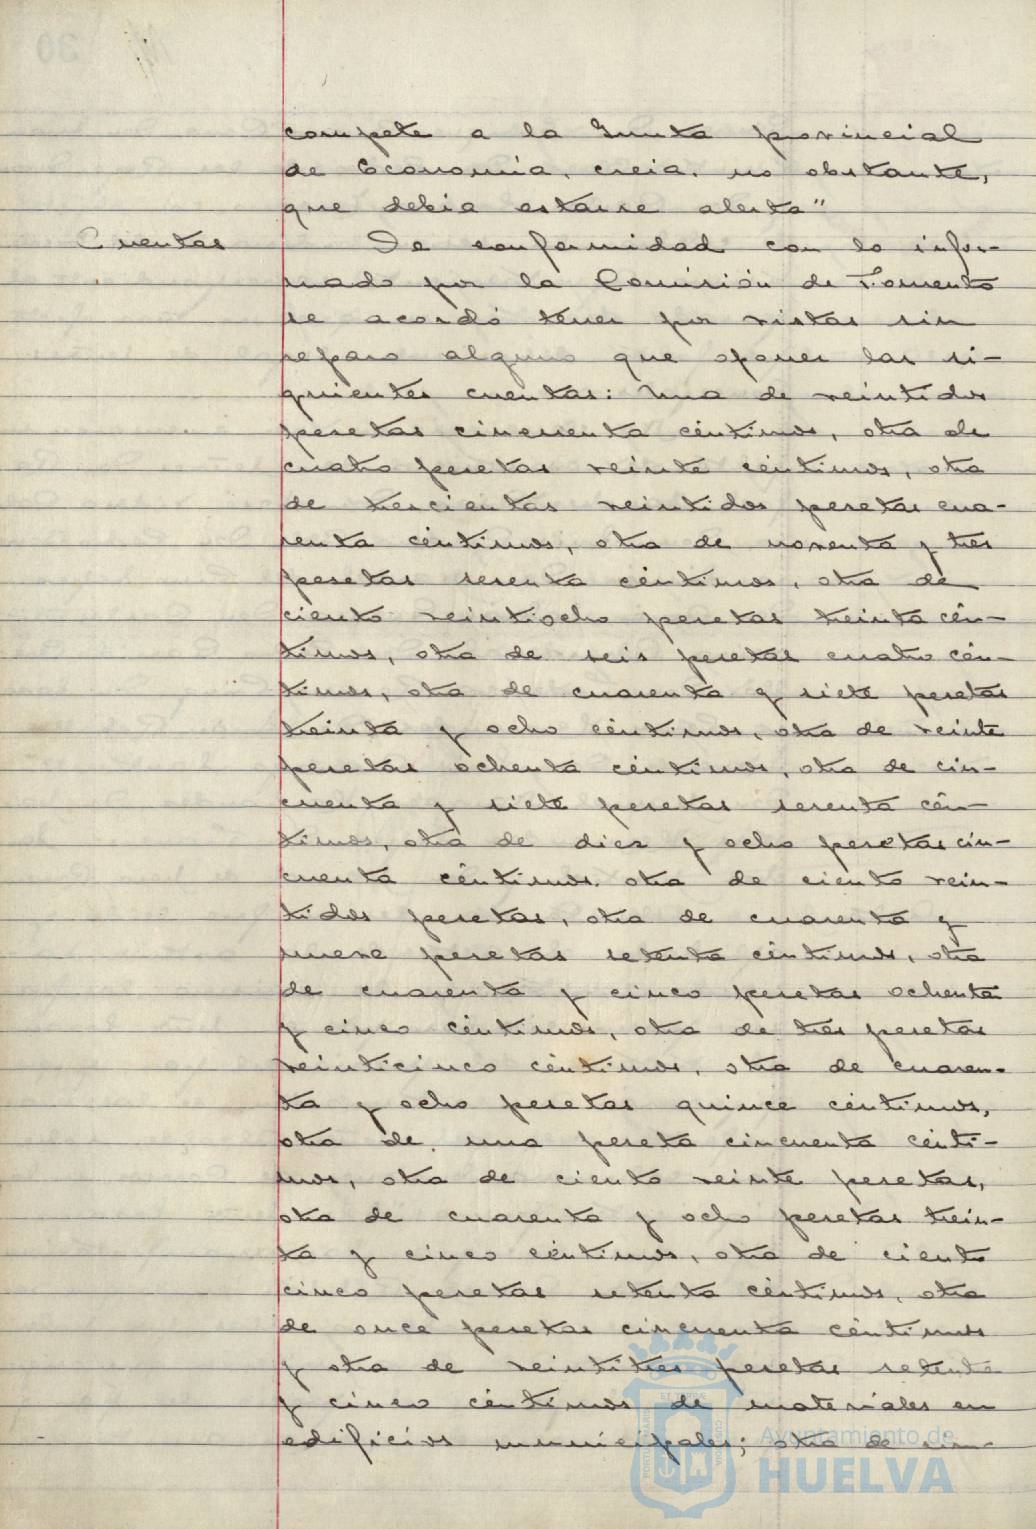 compete a la Junta provincial
de Economía, creia, no obstante,
que debia estarse alerta"
Cuentas De conformidad con lo infor-
mado por la Comisión de Fomento
se acordó tener por vistas sin
reparo alguno que oponer las si-
guientes cuentas: Una de veintidos
pesetas cincuenta céntimos, otra de
cuatro pesetas veinte céntimos, otra
de trescientas veintidos pesetas cua-
renta céntimos, otra de noventa y tres
pesetas sesenta céntimos, otra de
ciento veintiocho pesetas treinta cén-
timos, otra de seis pesetas cuatro cén-
timos, otra de cuarenta y siete pesetas
treinta y ocho céntimos, otra de veinte
pesetas ochenta céntimos, otra de cin-
cuenta y siete pesetas sesenta cén-
timos, otra de diez y ocho pesetas cin-
cuenta céntimos, otra de ciento vein-
tidos pesetas, otra de cuarenta y
nueve pesetas setenta céntimos, otra
de cuarenta y cinco pesetas ochenta
y cinco céntimos, otra de tres pesetas
veinticinco céntimos, otra de cuaren-
ta y ocho pesetas quince céntimos,
otra de una peseta cincuenta cénti-
mos, otra de ciento veinte pesetas,
otra de cuarenta y ocho pesetas trein-
ta y cinco céntimos, otra de ciento
cinco pesetas setenta céntimos, otra
de once pesetas cincuenta céntimos
y otra de veintitres pesetas setenta
y cinco céntimos de materiales en
edificios municipales; otra de cin-
Ayuntamiento de
HUELVA